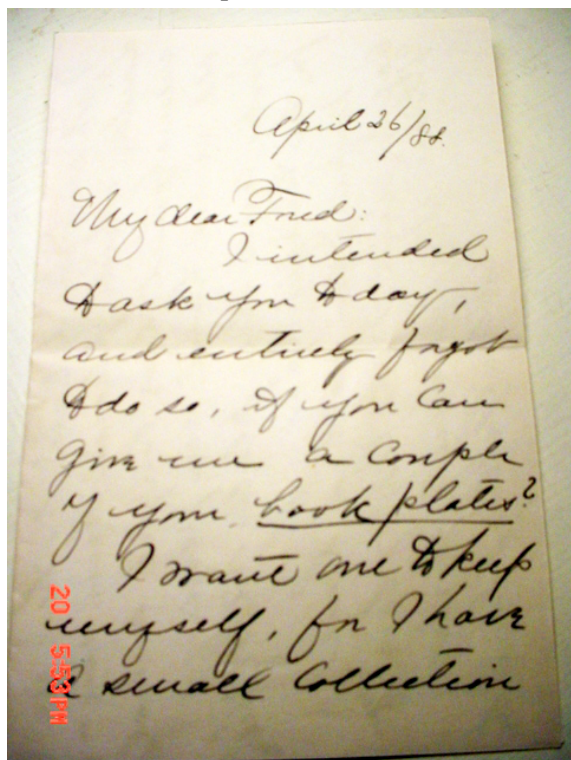 April 26/88.
My dear Fred:
I intended
to ask you to day,
and entirely forgot
to do so, if you can
give me a couple
of your book plates?
I want one to keep
myself, for I have
a small collection
20 5:53 PM